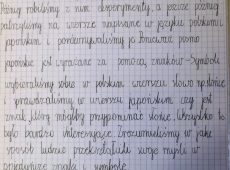 Później robiliśmy z nim eksperymenty, a jeszcze później
patrzyliśmy na wiersze napisane w języku polskim i
japońskim i porównywaliśmy je. Ponieważ pismo
japońskie jest wyrażane za pomocą znaków-symboli
wybieraliśmy sobie w polskim wierszu słowo np. słońce
i sprawdzaliśmy w wierszu japońskim czy jest
znak, który mógłby przypominać słońce. Wszystko to
było bardzo interesujące. Zrozumieliśmy w jaki
sposób ludzie przekształcali swoje myśli w
pojedyncze znaki i symbole